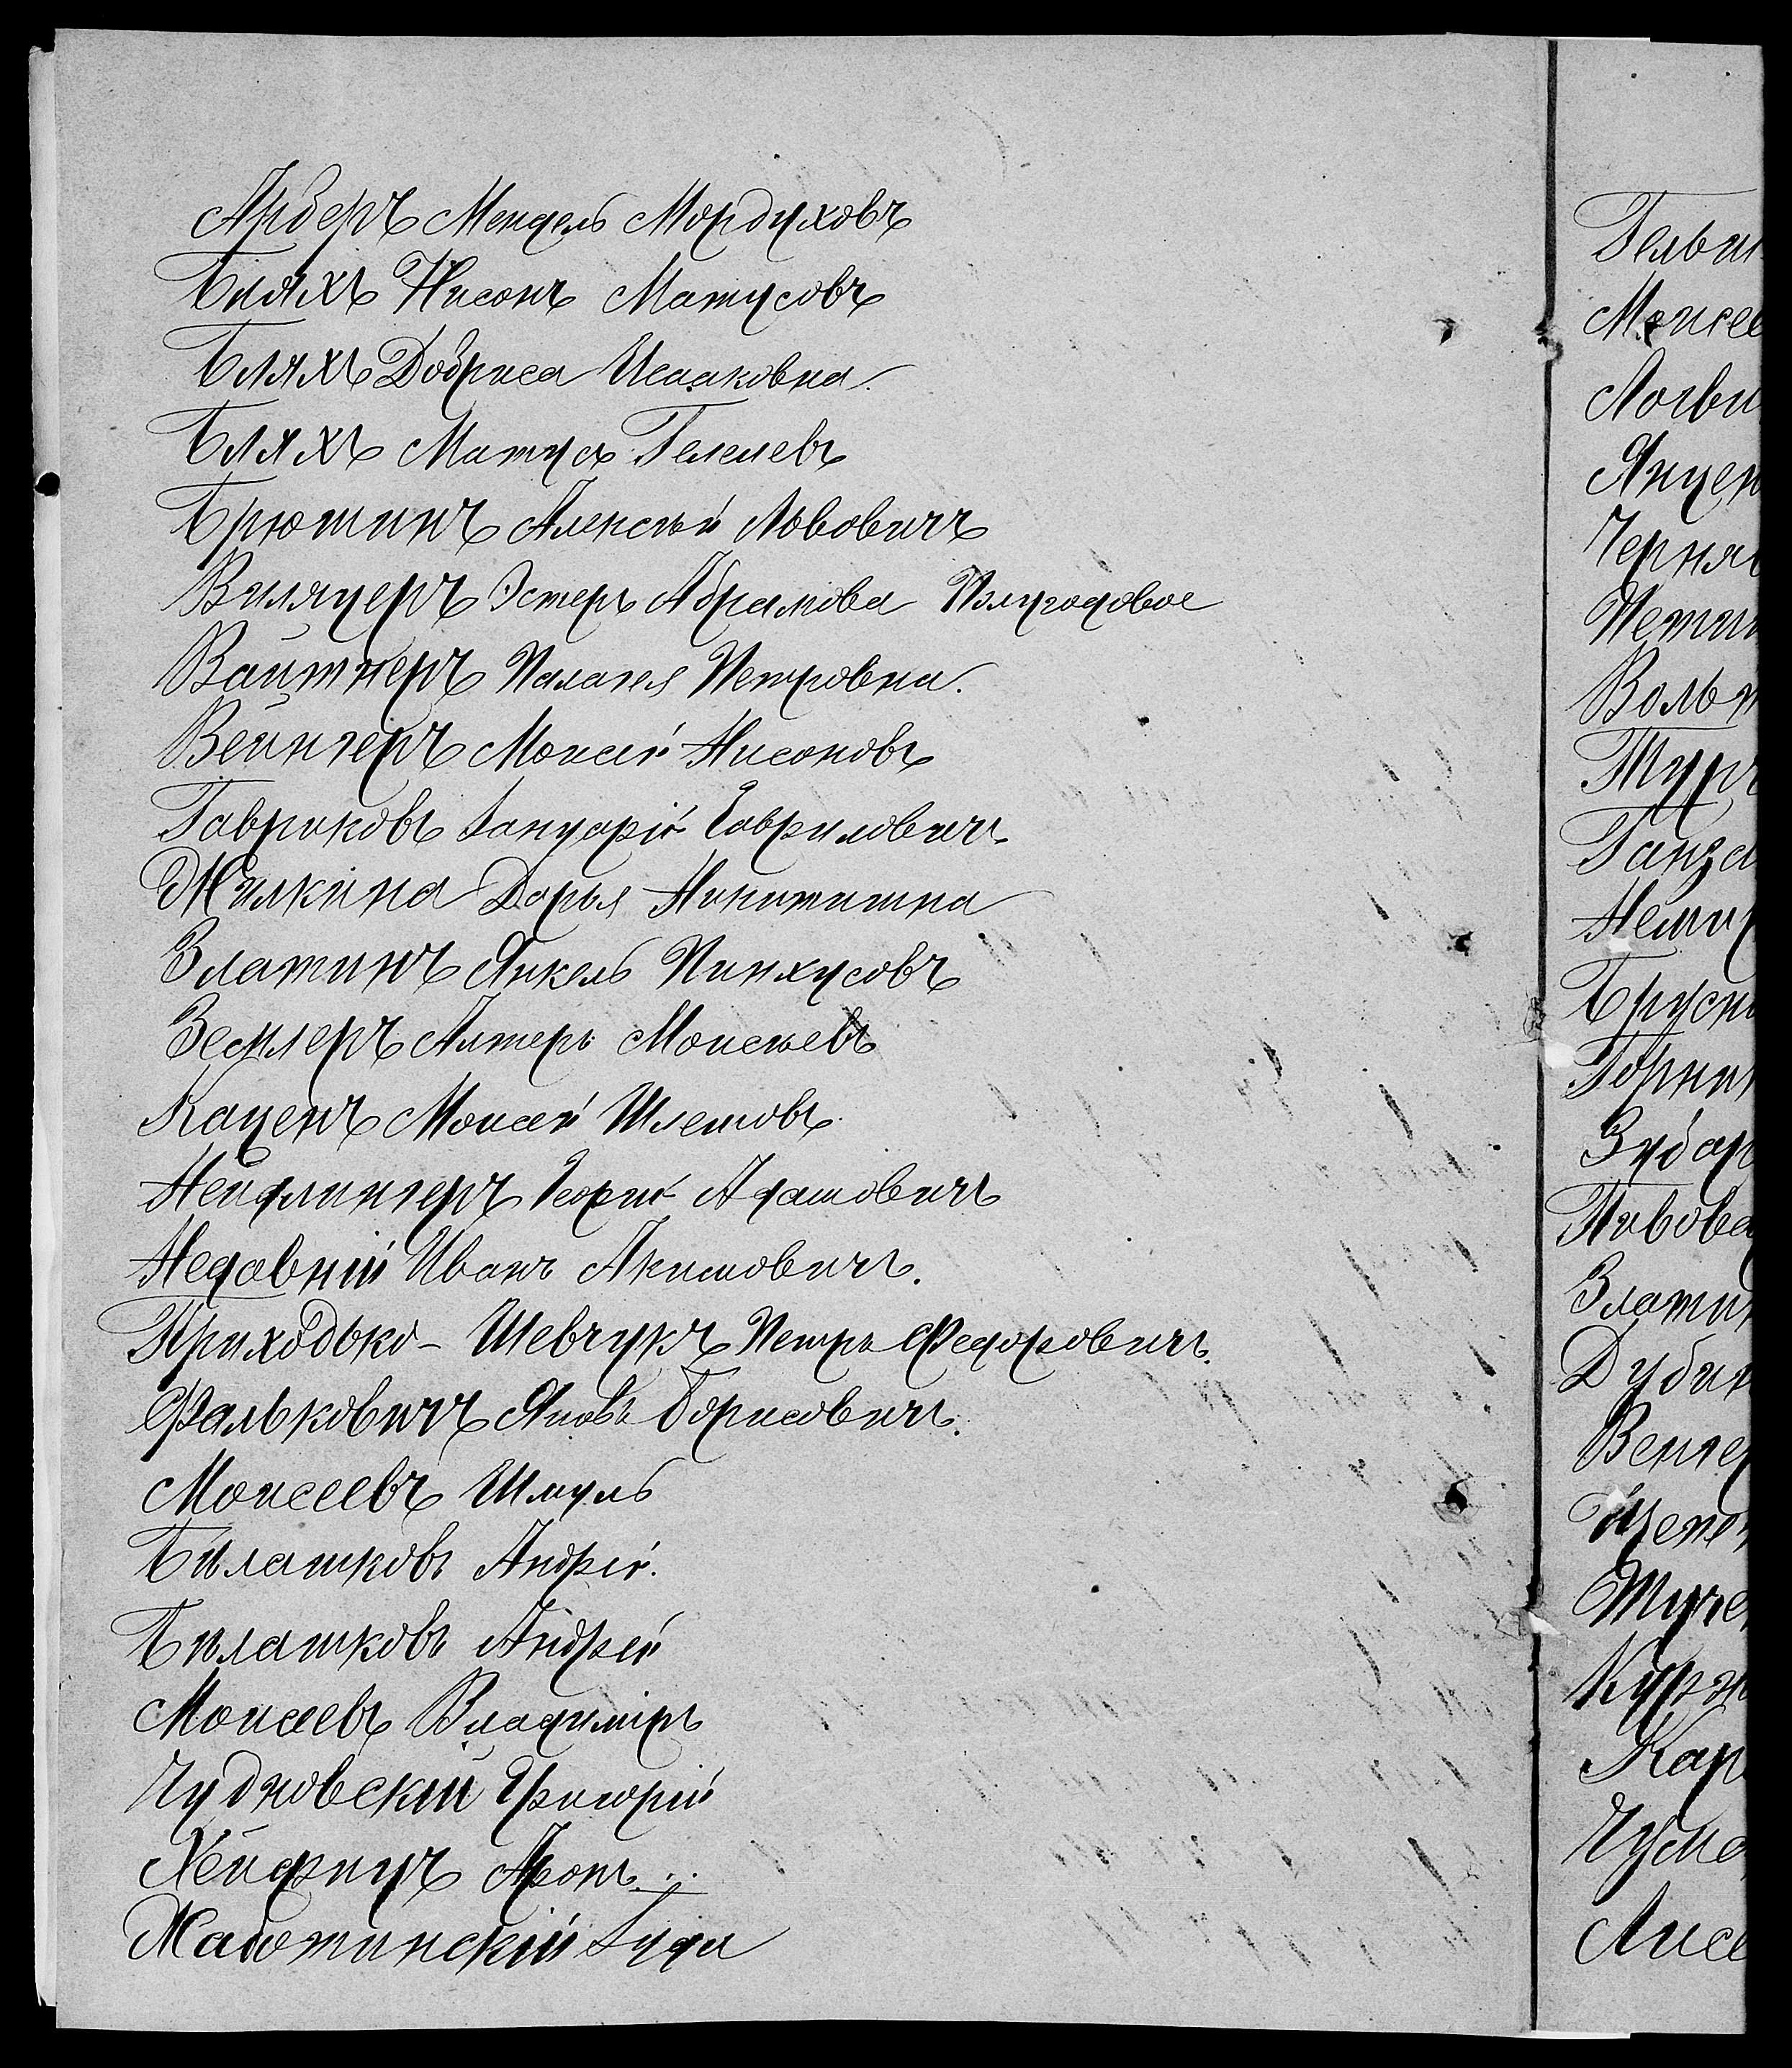 Арберъ Мендель Мордуховъ
Бляхъ Нисонъ Матусовъ
Бляхъ Добриса Исааковна.
Бляхъ Матусъ Гелелевъ
Брютинъ Алексѣй Львовичъ
Виляцеръ Эстеръ Абрамова Полугодовое
Вайтнеръ Палагея Петровна.
Вейнгеръ Моисей Нисоновъ
Гавриковъ Іануарій Гавриловичъ.
Жилкина Дарья Никитишна
Златинъ Янкель Пинхусовъ
Землеръ Алтеръ Моисеевъ
Каценъ Моисей Шлемовъ
Нейдлингеръ Георгій Адамовичъ
Недавній Иванъ Акимовичъ.
Приходько-Шевчукъ Петръ Федоровичъ.
Фальковичъ Яковъ Борисовичъ.
Моисеевъ Шмуль
Билашковъ Андрей.
Билашковъ Андрей
Моисеевъ Владиміръ
Чудновскій Григорій
Хейфицъ Аронъ
Жаботинскій Іуда
Гельи
Моисее
Логви
Янцен
Черняв
Петли
Вольн
Тург
Ганза
Неми
Брусн
Горни
Зубар
Пивова
Златин
Дубин
Венгер
Щепо
Туче
Курж
Кар
Чума
Лисе